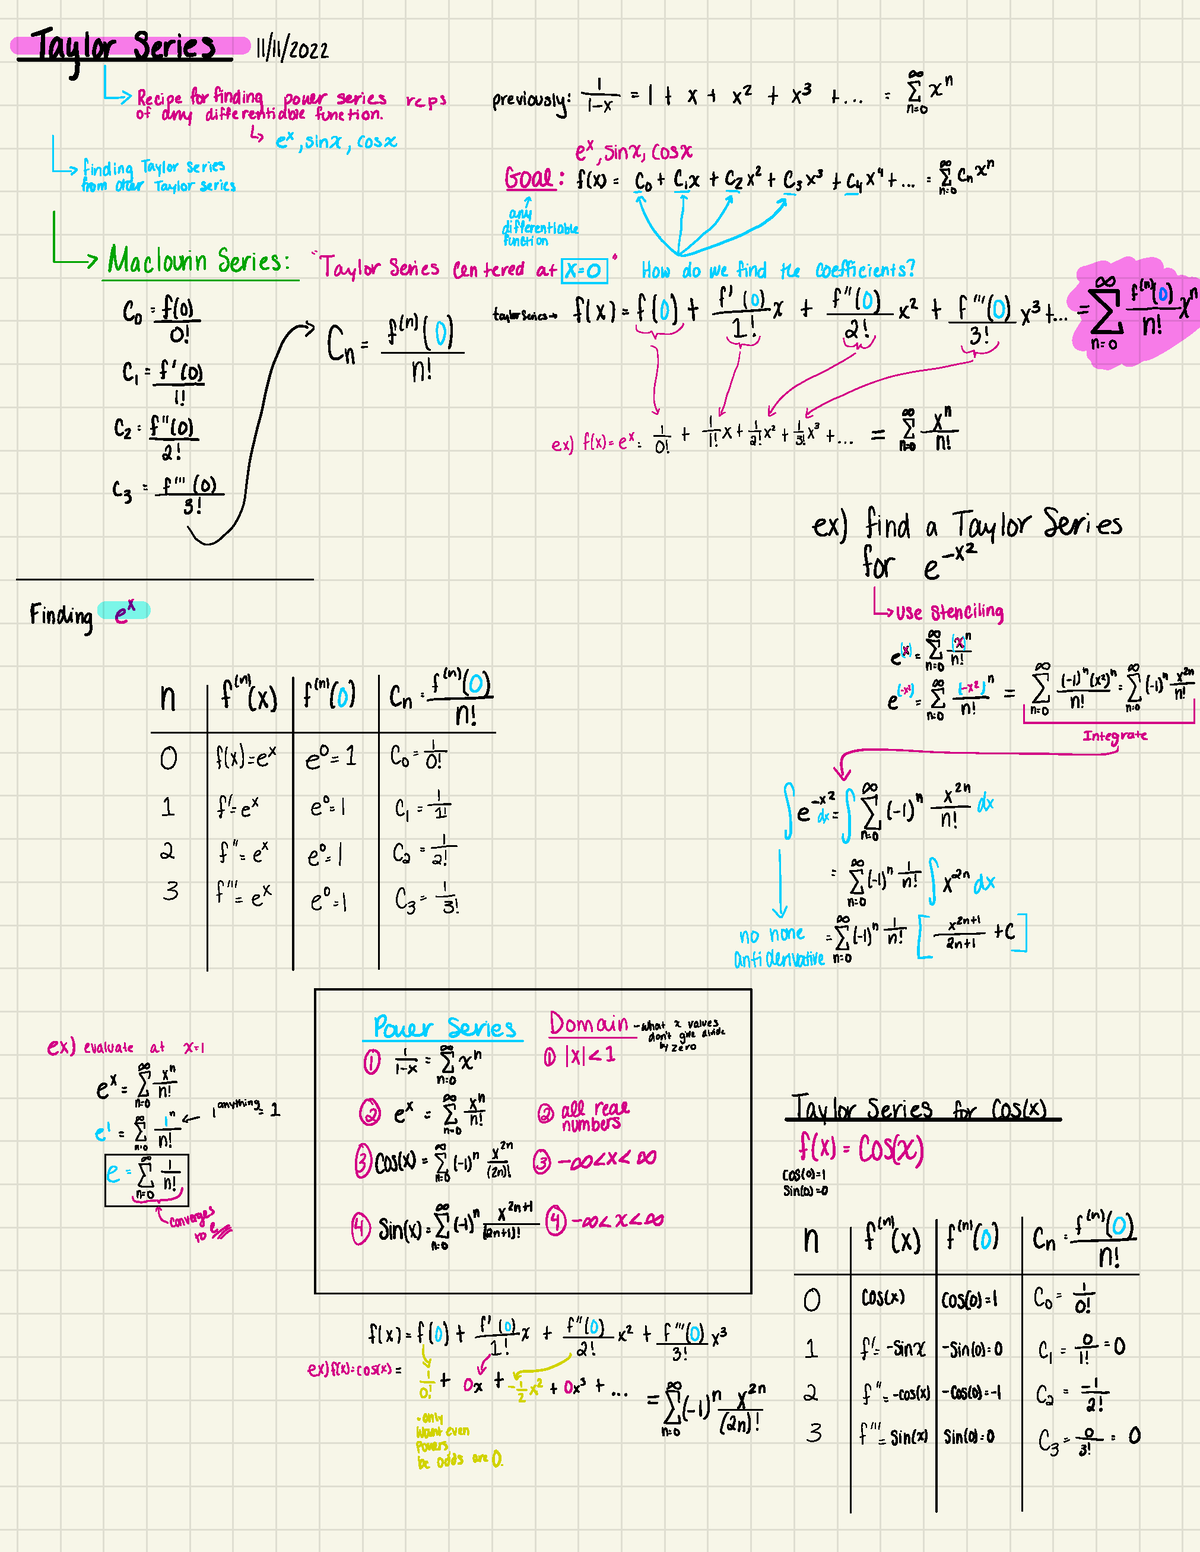 Taylor Series 11/11/2022
Recipe for finding power series reps
of any differentiable function.
e^x, sinx, cosx
finding Taylor Series
from other Taylor series
previously: 1/(1-x) = 1 + x + x² + x³ + ... = Σ_{n=0}^{∞} x^n
e^x, sinx, cosx
Goal: f(x) = C₀ + C₁x + C₂x² + C₃x³ + C₄x⁴ + ... = Σ_{n=0}^{∞} Cₙx^n
any
differentiable
function
Maclaurin Series: "Taylor Series Centered at x=0"
How do we find the coefficients?
C₀ = f(0)/0!
C₁ = f'(0)/1!
C₂ = f''(0)/2!
C₃ = f'''(0)/3!
Cₙ = f^(n)(0)/n!
taylor series → f(x) = f(0) + f'(0)/1! x + f''(0)/2! x² + f'''(0)/3! x³ + ... = Σ_{n=0}^{∞} f^(n)(0)/n! x^n
ex) f(x) = e^x = 1/0! + 1/1! x + 1/2! x² + 1/3! x³ + ... = Σ_{n=0}^{∞} x^n/n!
ex) find a Taylor Series
for e^(-x²)
Use Stenciling
e^(x) = Σ_{n=0}^{∞} (x)^n/n!
e^(-x²) = Σ_{n=0}^{∞} (-x²)^n/n! = Σ_{n=0}^{∞} (-1)^n (x²)^n/n! = Σ_{n=0}^{∞} (-1)^n x^(2n)/n!
Integrate
∫ e^(-x²) dx = ∫ Σ_{n=0}^{∞} (-1)^n x^(2n)/n! dx
= Σ_{n=0}^{∞} (-1)^n 1/n! ∫ x^(2n) dx
= Σ_{n=0}^{∞} (-1)^n 1/n! [ x^(2n+1)/(2n+1) + C ]
no none
antiderivative
Finding e^x
n f^(n)(x) f^(n)(0) Cₙ = f^(n)(0)/n!
0 f(x) = e^x e⁰ = 1 C₀ = 1/0!
1 f' = e^x e⁰ = 1 C₁ = 1/1!
2 f'' = e^x e⁰ = 1 C₂ = 1/2!
3 f''' = e^x e⁰ = 1 C₃ = 1/3!
ex) evaluate at x=1
e^x = Σ_{n=0}^{∞} x^n/n!
e^1 = Σ_{n=0}^{∞} 1^n/n!
1^anything = 1
e = Σ_{n=0}^{∞} 1/n!
converges
to e
Power Series Domain - what x values
don't give divide
by zero
① 1/(1-x) = Σ_{n=0}^{∞} x^n ① |x| < 1
② e^x = Σ_{n=0}^{∞} x^n/n! ② all real
numbers
③ Cos(x) = Σ_{n=0}^{∞} (-1)^n x^(2n)/(2n)! ③ -∞ < x < ∞
④ Sin(x) = Σ_{n=0}^{∞} (-1)^n x^(2n+1)/(2n+1)! ④ -∞ < x < ∞
f(x) = f(0) + f'(0)/1! x + f''(0)/2! x² + f'''(0)/3! x³
ex) f(x) = cos(x) = 1/0! + 0x + -1/2 x² + 0x³ + ... = Σ_{n=0}^{∞} (-1)^n x^(2n)/(2n)!
- only
want even
powers
bc odds are 0.
Taylor Series for Cos(x)
f(x) = Cos(x)
Cos(0)=1
Sin(0)=0
n f^(n)(x) f^(n)(0) Cₙ = f^(n)(0)/n!
0 cos(x) cos(0)=1 C₀ = 1/0!
1 f' = -Sinx -Sin(0)=0 C₁ = 0/1! = 0
2 f'' = -cos(x) -Cos(0)=-1 C₂ = -1/2!
3 f''' = Sin(x) Sin(0)=0 C₃ = 0/3! = 0